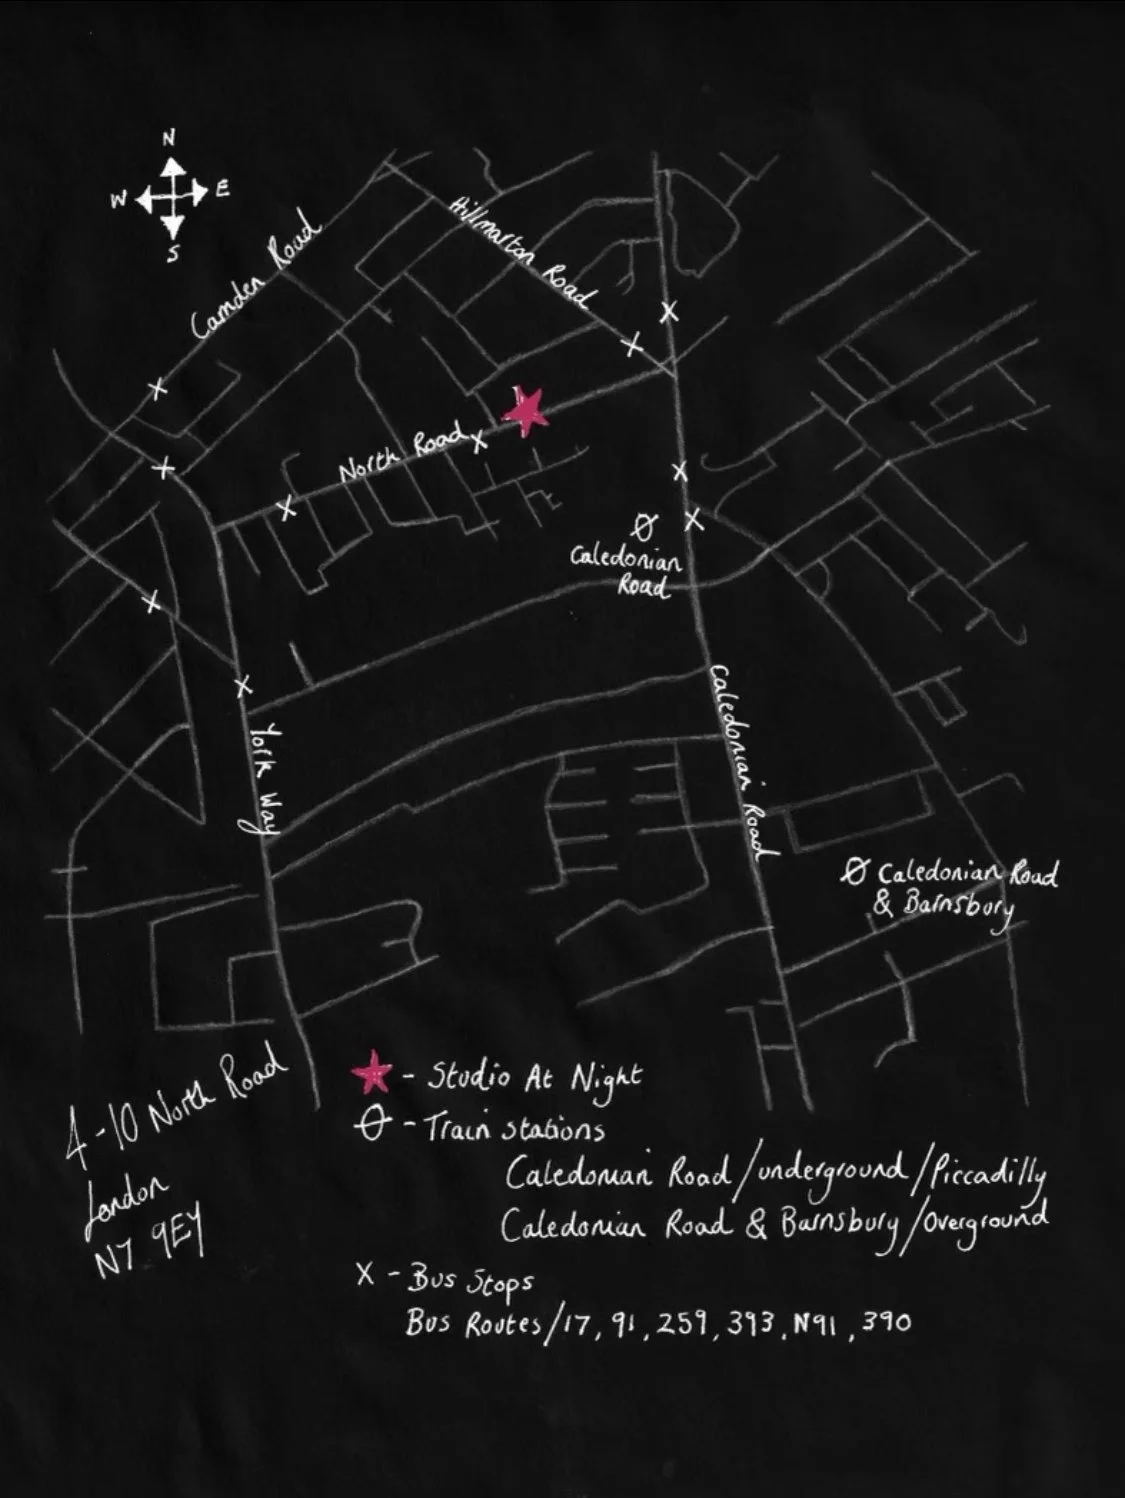 N
W E
S
Camden Road
Hillmarton Road
North Road
Caledonian
Road
York Way
Caledonian Road
Caledonian Road
& Barnsbury
4-10 North Road
London
N7 9EY
- Studio At Night
- Train stations
Caledonian Road/underground/Piccadilly
Caledonian Road & Barnsbury/Overground
X - Bus Stops
Bus Routes/17, 91, 259, 393, N91, 390